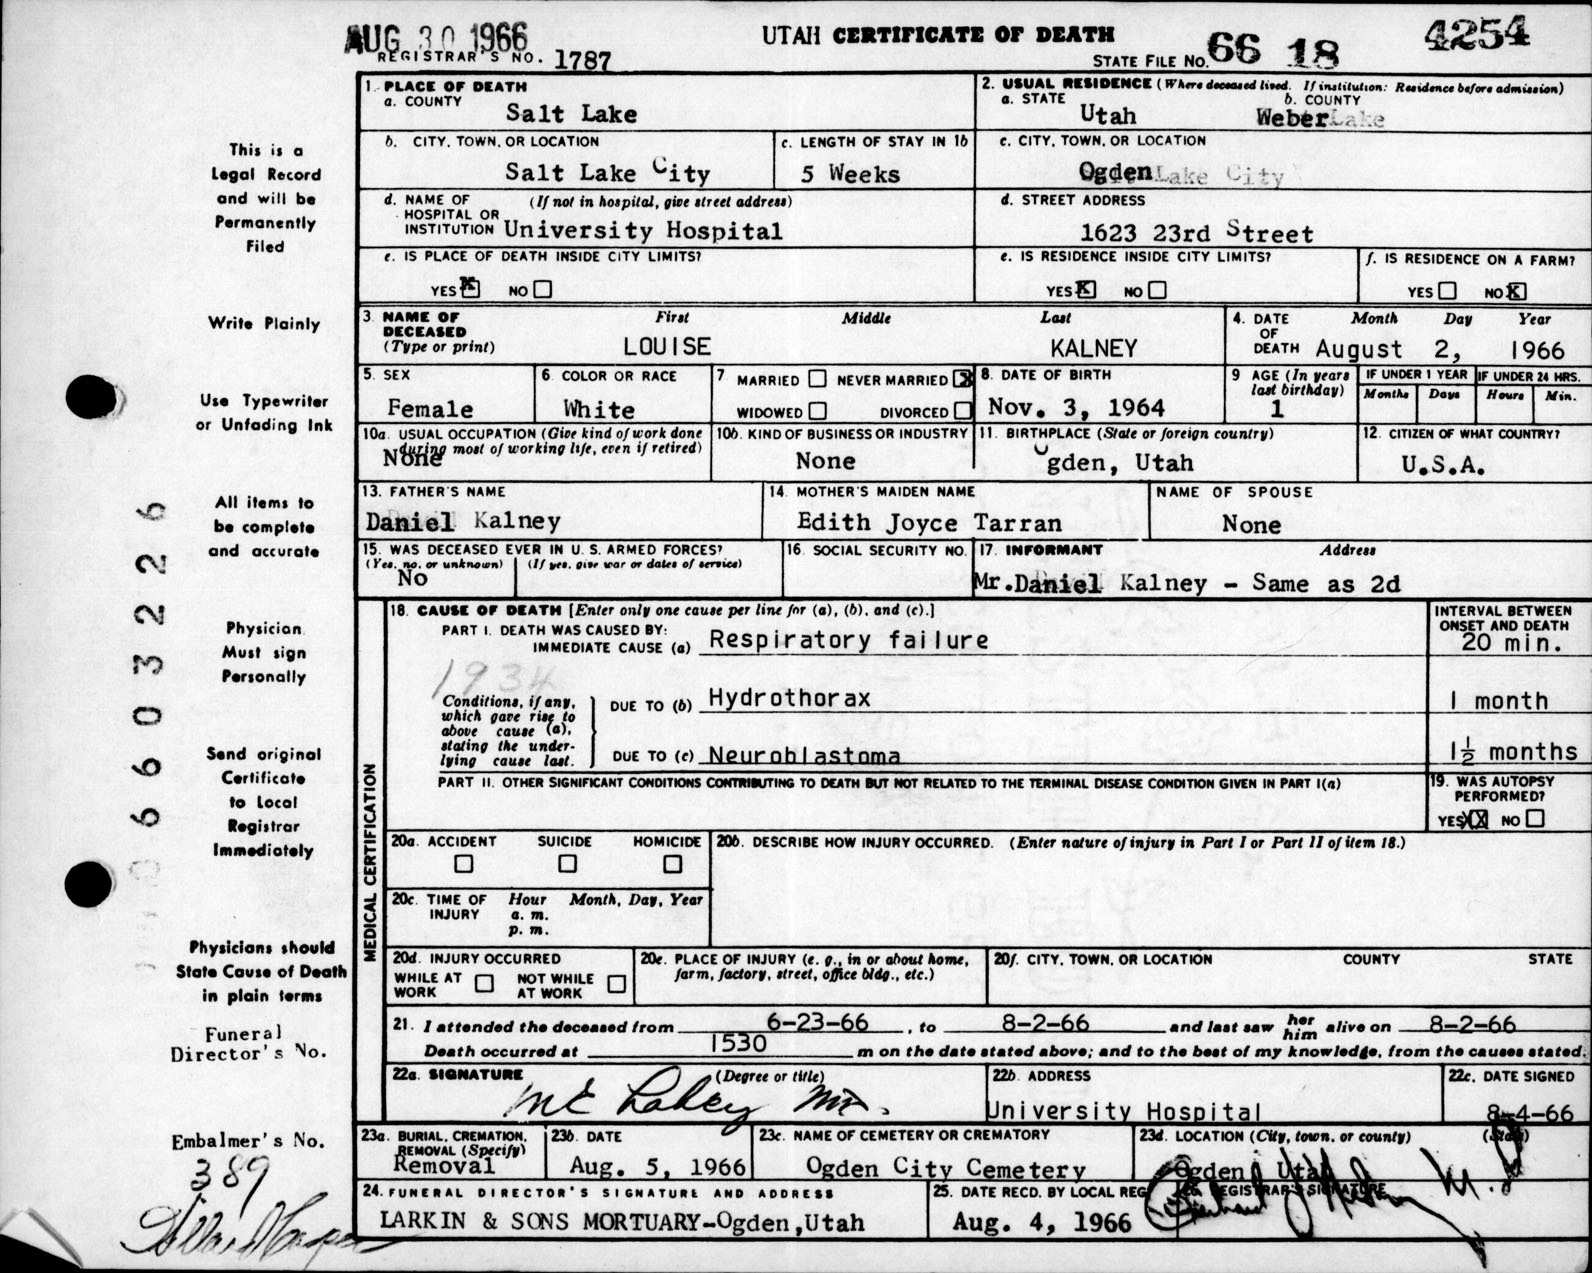 AUG 30 1966
UTAH CERTIFICATE OF DEATH
REGISTRAR'S NO. 1787
STATE FILE NO. 66 18 4254
This is a
Legal Record
and will be
Permanently
Filed
Write Plainly
Use Typewriter
or Unfading Ink
All items to
be complete
and accurate
Physician
Must sign
Personally
Send original
Certificate
to Local
Registrar
Immediately
Physicians should
State Cause of Death
in plain terms
Funeral
Director's No.
Embalmer's No.
389
66032226
1. PLACE OF DEATH
a. COUNTY
Salt Lake
2. USUAL RESIDENCE (Where deceased lived. If institution: Residence before admission)
a. STATE
Utah
b. COUNTY
Weber Lake
b. CITY, TOWN, OR LOCATION
Salt Lake City
c. LENGTH OF STAY IN 1b
5 Weeks
c. CITY, TOWN, OR LOCATION
Ogden Lake City
d. NAME OF (If not in hospital, give street address)
HOSPITAL OR
INSTITUTION University Hospital
d. STREET ADDRESS
1623 23rd Street
e. IS PLACE OF DEATH INSIDE CITY LIMITS?
YES X NO
e. IS RESIDENCE INSIDE CITY LIMITS?
YES X NO
f. IS RESIDENCE ON A FARM?
YES NO X
3. NAME OF First Middle Last
DECEASED
(Type or print) LOUISE KALNEY
4. DATE Month Day Year
OF
DEATH August 2, 1966
5. SEX
Female
6. COLOR OR RACE
White
7 MARRIED NEVER MARRIED X
WIDOWED DIVORCED
8. DATE OF BIRTH
Nov. 3, 1964
9 AGE (In years
last birthday)
1
IF UNDER 1 YEAR
Months Days
IF UNDER 24 HRS.
Hours Min.
10a. USUAL OCCUPATION (Give kind of work done
during most of working life, even if retired)
None
10b. KIND OF BUSINESS OR INDUSTRY
None
11. BIRTHPLACE (State or foreign country)
Ogden, Utah
12. CITIZEN OF WHAT COUNTRY?
U.S.A.
13. FATHER'S NAME
Daniel Kalney
14. MOTHER'S MAIDEN NAME
Edith Joyce Tarran
NAME OF SPOUSE
None
15. WAS DECEASED EVER IN U. S. ARMED FORCES?
(Yes, no, or unknown) (If yes, give war or dates of service)
No
16. SOCIAL SECURITY NO.
17. INFORMANT Address
Mr. Daniel Kalney - Same as 2d
MEDICAL CERTIFICATION
18. CAUSE OF DEATH [Enter only one cause per line for (a), (b), and (c).]
PART I. DEATH WAS CAUSED BY:
IMMEDIATE CAUSE (a) Respiratory failure
INTERVAL BETWEEN
ONSET AND DEATH
20 min.
1934
Conditions, if any,
which gave rise to
above cause (a),
stating the under-
lying cause last.
DUE TO (b) Hydrothorax
1 month
DUE TO (c) Neuroblastoma
1½ months
PART II. OTHER SIGNIFICANT CONDITIONS CONTRIBUTING TO DEATH BUT NOT RELATED TO THE TERMINAL DISEASE CONDITION GIVEN IN PART I(a)
19. WAS AUTOPSY
PERFORMED?
YES XX NO
20a. ACCIDENT SUICIDE HOMICIDE
20b. DESCRIBE HOW INJURY OCCURRED. (Enter nature of injury in Part I or Part II of item 18.)
20c. TIME OF Hour Month, Day, Year
INJURY a. m.
p. m.
20d. INJURY OCCURRED
WHILE AT NOT WHILE
WORK AT WORK
20e. PLACE OF INJURY (e. g., in or about home,
farm, factory, street, office bldg., etc.)
20f. CITY, TOWN, OR LOCATION COUNTY STATE
21. I attended the deceased from 6-23-66, to 8-2-66 and last saw her him alive on 8-2-66
Death occurred at 1530 m on the date stated above; and to the best of my knowledge, from the causes stated.
22a. SIGNATURE (Degree or title)
M E Lahey MD.
22b. ADDRESS
University Hospital
22c. DATE SIGNED
8-4-66
23a. BURIAL, CREMATION,
REMOVAL (Specify)
Removal
23b. DATE
Aug. 5, 1966
23c. NAME OF CEMETERY OR CREMATORY
Ogden City Cemetery
23d. LOCATION (City, town, or county) (State)
Ogden Utah
24. FUNERAL DIRECTOR'S SIGNATURE AND ADDRESS
LARKIN & SONS MORTUARY-Ogden, Utah
25. DATE RECD. BY LOCAL REG
Aug. 4, 1966
26. REGISTRAR'S SIGNATURE
M.D